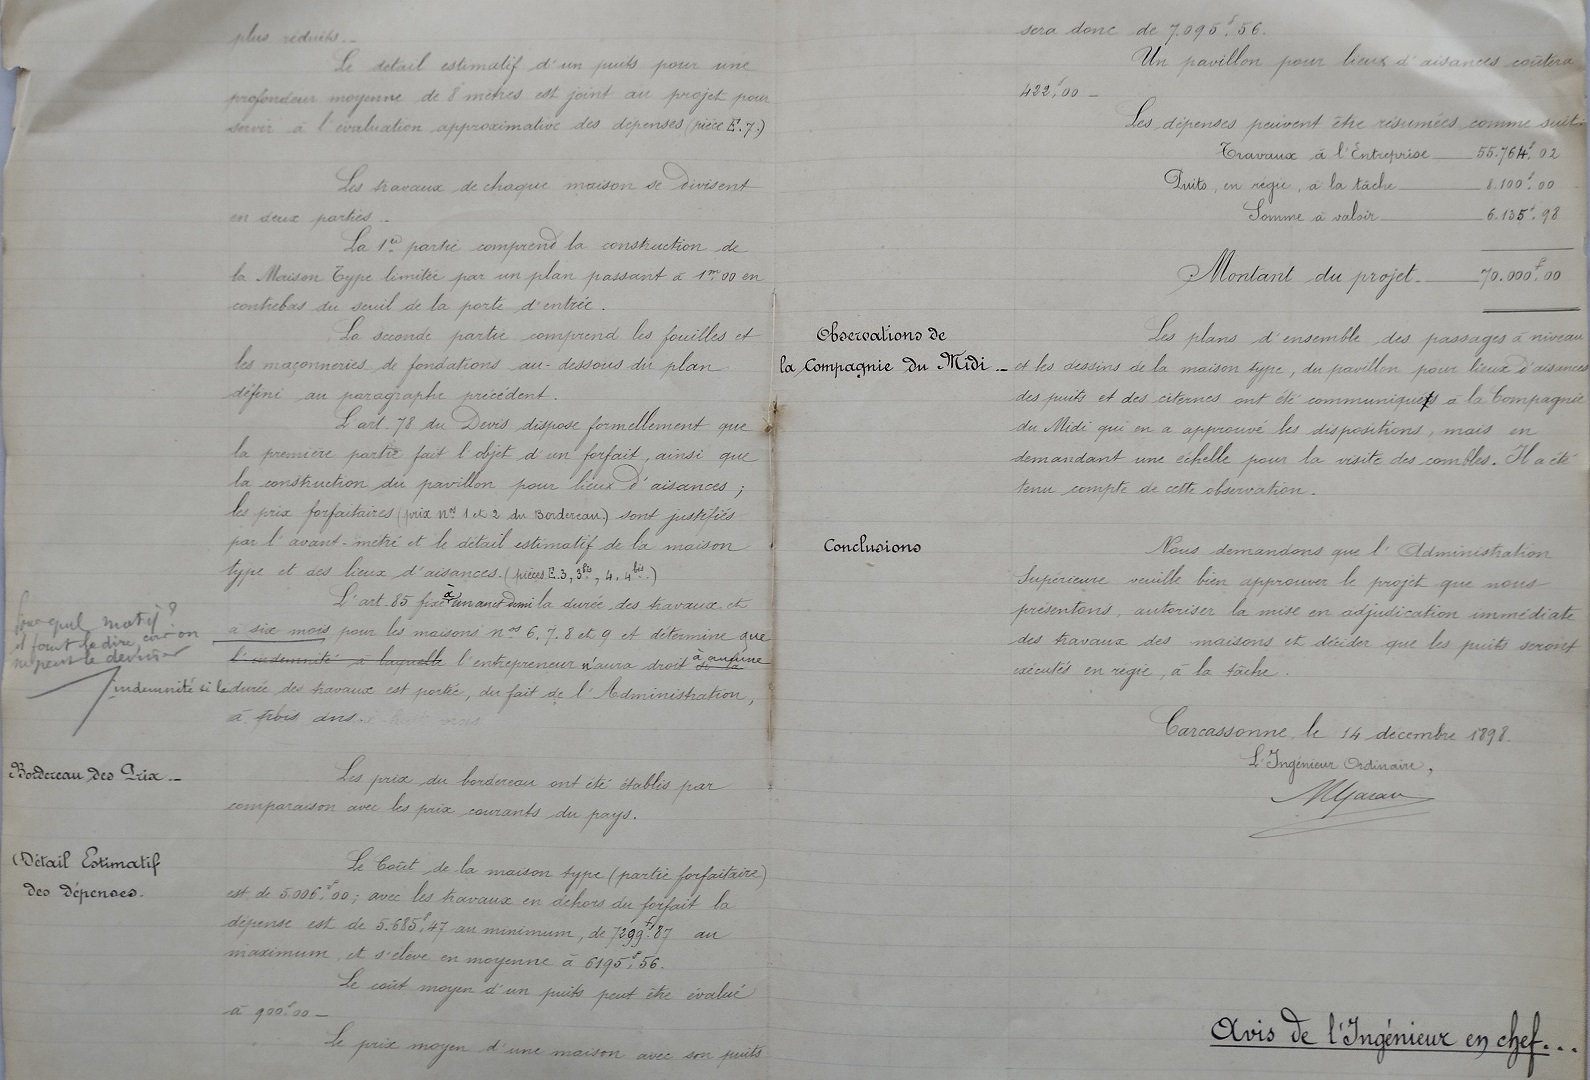 plus réduits.
Le détail estimatif d'un puits pour une
profondeur moyenne de 8 mètres est joint au projet pour
servir à l'évaluation approximative des dépenses (pièce E. 7.)
Les travaux de chaque maison se divisent
en deux parties.
La 1re partie comprend la construction de
la Maison Type limitée par un plan passant à 1m00 en
contrebas du seuil de la porte d'entrée.
La seconde partie comprend les fouilles et
les maçonneries de fondations au-dessous du plan
défini au paragraphe précédent.
L'art. 78 du Devis dispose formellement que
la première partie fait l'objet d'un forfait, ainsi que
la construction du pavillon pour lieux d'aisances ;
les prix forfaitaires (prix nos 1 et 2 du Bordereau) sont justifiés
par l'avant-métré et le détail estimatif de la maison
type et des lieux d'aisances. (pièces E.3, 3bis, 4, 4bis.)
L'art 85 fixe à un an et demi la durée des travaux et
à six mois pour les maisons nos 6, 7, 8 et 9 et détermine que
l'indemnité à laquelle l'entrepreneur n'aura droit à aucune
indemnité si la durée des travaux est portée, du fait de l'Administration,
à trois ans.
pour quel motif ?
il faut le dire car on
ne peut le deviner
Bordereau des Prix
Les prix du bordereau ont été établis par
comparaison avec les prix courants du pays.
Détail Estimatif
des dépenses.
Le Coût de la maison type (partie forfaitaire)
est de 5.006f.00 ; avec les travaux en dehors du forfait la
dépense est de 5.685f.47 au minimum, de 7299f.87 au
maximum et s'élève en moyenne à 6195f.56.
Le coût moyen d'un puits peut être évalué
à 900f.00
Le prix moyen d'une maison avec son puits
sera donc de 7.095f.56.
Un pavillon pour lieux d'aisances coûtera
422f.00
Les dépenses peuvent être résumées comme suit
Travaux à l'Entreprise 55.764f.02
Puits, en régie, à la tâche 8.100f.00
Somme à valoir 6.135f.98
Montant du projet 70.000f.00
Observations de
la Compagnie du Midi
Les plans d'ensemble des passages à niveau
et les dessins de la maison type, du pavillon pour lieux d'aisances
des puits et des citernes ont été communiqués à la Compagnie
du Midi qui en a approuvé les dispositions, mais en
demandant une échelle pour la visite des combles. Il a été
tenu compte de cette observation.
Conclusions
Nous demandons que l'Administration
Supérieure veuille bien approuver le projet que nous
présentons, autoriser la mise en adjudication immédiate
des travaux des maisons et décider que les puits seront
exécutés en régie, à la tâche.
Carcassonne, le 14 décembre 1898.
L'Ingénieur Ordinaire,
Avis de l'Ingénieur en chef...